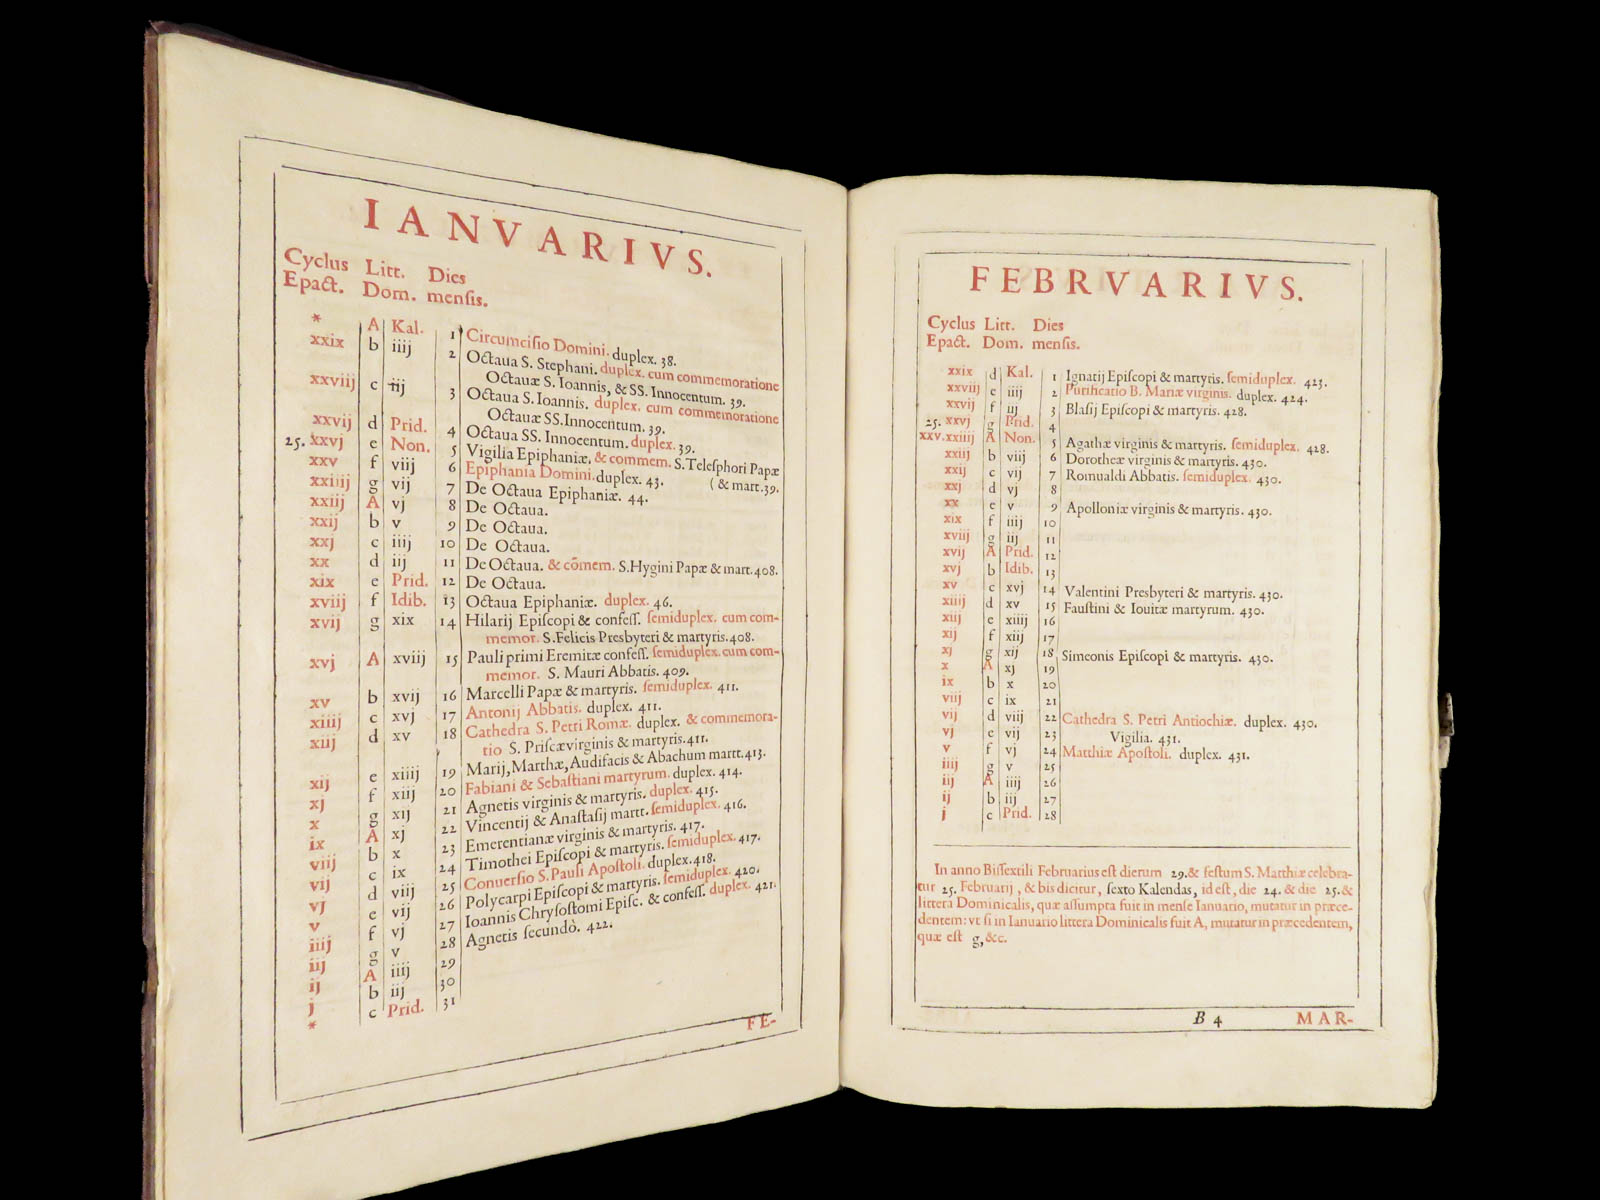 IANVARIVS.
Cyclus Litt. Dies
Epact. Dom. mensis.
* A Kal. 1 Circumcisio Domini. duplex. 38.
xxix b iiij 2 Octaua S. Stephani. duplex. cum commemoratione
Octauæ S. Ioannis, & SS. Innocentum. 39.
xxviij c iij 3 Octaua S. Ioannis. duplex. cum commemoratione
Octauæ SS. Innocentum. 39.
xxvij d Prid. 4 Octaua SS. Innocentum. duplex. 39.
25. xxvj e Non. 5 Vigilia Epiphaniæ, & commem. S. Telesphori Papæ
xxv f viij 6 Epiphania Domini. duplex. 43. ( & mart. 39.
xxiiij g vij 7 De Octaua Epiphaniæ. 44.
xxiij A vj 8 De Octaua.
xxij b v 9 De Octaua.
xxj c iiij 10 De Octaua.
xx d iij 11 De Octaua. & cōmem. S. Hygini Papæ & mart. 408.
xix e Prid. 12 De Octaua.
xviij f Idib. 13 Octaua Epiphaniæ. duplex. 46.
xvij g xix 14 Hilarij Episcopi & confess. semiduplex. cum com-
memor. S. Felicis Presbyteri & martyris. 408.
xvj A xviij 15 Pauli primi Eremitæ confess. semiduplex. cum com-
memor. S. Mauri Abbatis. 409.
xv b xvij 16 Marcelli Papæ & martyris. semiduplex. 411.
xiiij c xvj 17 Antonij Abbatis. duplex. 411.
xiij d xv 18 Cathedra S. Petri Romæ. duplex. & commemora-
tio S. Priscæ virginis & martyris. 411.
xij e xiiij 19 Marij, Marthæ, Audifacis & Abachum martt. 413.
xj f xiij 20 Fabiani & Sebastiani martyrum. duplex. 414.
x g xij 21 Agnetis virginis & martyris. duplex. 415.
ix A xj 22 Vincentij & Anastasij martt. semiduplex. 416.
viij b x 23 Emerentianæ virginis & martyris. 417.
vij c ix 24 Timothei Episcopi & martyris. semiduplex. 417.
vj d viij 25 Conuersio S. Pauli Apostoli. duplex. 418.
v e vij 26 Polycarpi Episcopi & martyris. semiduplex. 420.
iiij f vj 27 Ioannis Chrysostomi Episc. & confess. duplex. 421.
iij g v 28 Agnetis secundò. 422.
ij A iiij 29
j b iij 30
* c Prid. 31
FE-
FEBRVARIVS.
Cyclus Litt. Dies
Epact. Dom. mensis.
xxix d Kal. 1 Ignatij Episcopi & martyris. semiduplex. 423.
xxviij e iiij 2 Purificatio B. Mariæ virginis. duplex. 424.
xxvij f iij 3 Blasij Episcopi & martyris. 428.
25. xxvj g Prid. 4
xxv. xxiiij A Non. 5 Agathæ virginis & martyris. semiduplex. 428.
xxiij b viij 6 Dorotheæ virginis & martyris. 430.
xxij c vij 7 Romualdi Abbatis. semiduplex. 430.
xxj d vj 8
xx e v 9 Apolloniæ virginis & martyris. 430.
xix f iiij 10
xviij g iij 11
xvij A Prid. 12
xvj b Idib. 13
xv c xvj 14 Valentini Presbyteri & martyris. 430.
xiiij d xv 15 Faustini & Iouitæ martyrum. 430.
xiij e xiiij 16
xij f xiij 17
xj g xij 18 Simeonis Episcopi & martyris. 430.
x A xj 19
ix b x 20
viij c ix 21
vij d viij 22 Cathedra S. Petri Antiochiæ. duplex. 430.
vj e vij 23 Vigilia. 431.
v f vj 24 Matthiæ Apostoli. duplex. 431.
iiij g v 25
iij A iiij 26
ij b iij 27
j c Prid. 28
In anno Bissextili Februarius est dierum 29. & festum S. Matthiæ celebra-
tur 25. Februarij, & bis dicitur, sexto Kalendas, id est, die 24. & die 25. &
littera Dominicalis, quæ assumpta fuit in mense Ianuario, mutatur in præce-
dentem: vt si in Ianuario littera Dominicalis fuit A, mutatur in præcedentem,
quæ est g, &c.
B 4 MAR-